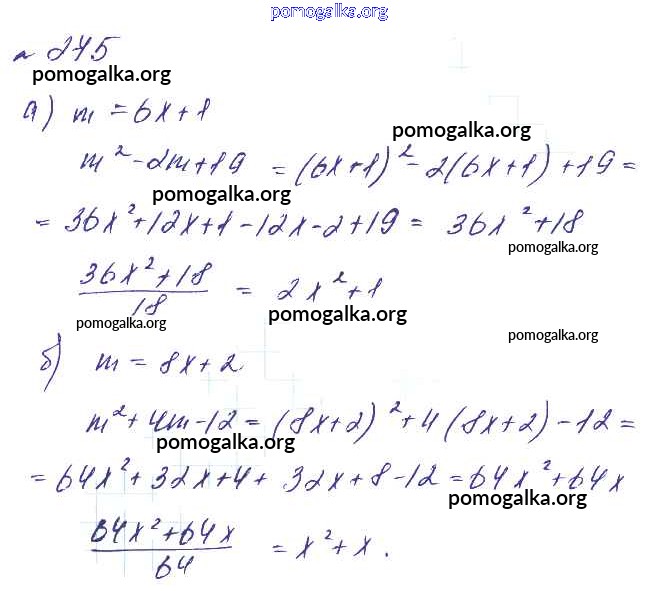 pomogalka.org
№ 275
pomogalka.org
а) m = 6x+1
pomogalka.org
m² - 2m + 19 = (6x+1)² - 2(6x+1) + 19 =
pomogalka.org
= 36x² + 12x + 1 - 12x - 2 + 19 = 36x² + 18
pomogalka.org
36x² + 18 / 18 = 2x² + 1
pomogalka.org
pomogalka.org
pomogalka.org
б) m = 8x + 2
m² + 4m - 12 = (8x+2)² + 4(8x+2) - 12 =
pomogalka.org
= 64x² + 32x + 4 + 32x + 8 - 12 = 64x² + 64x
pomogalka.org
64x² + 64x / 64 = x² + x.